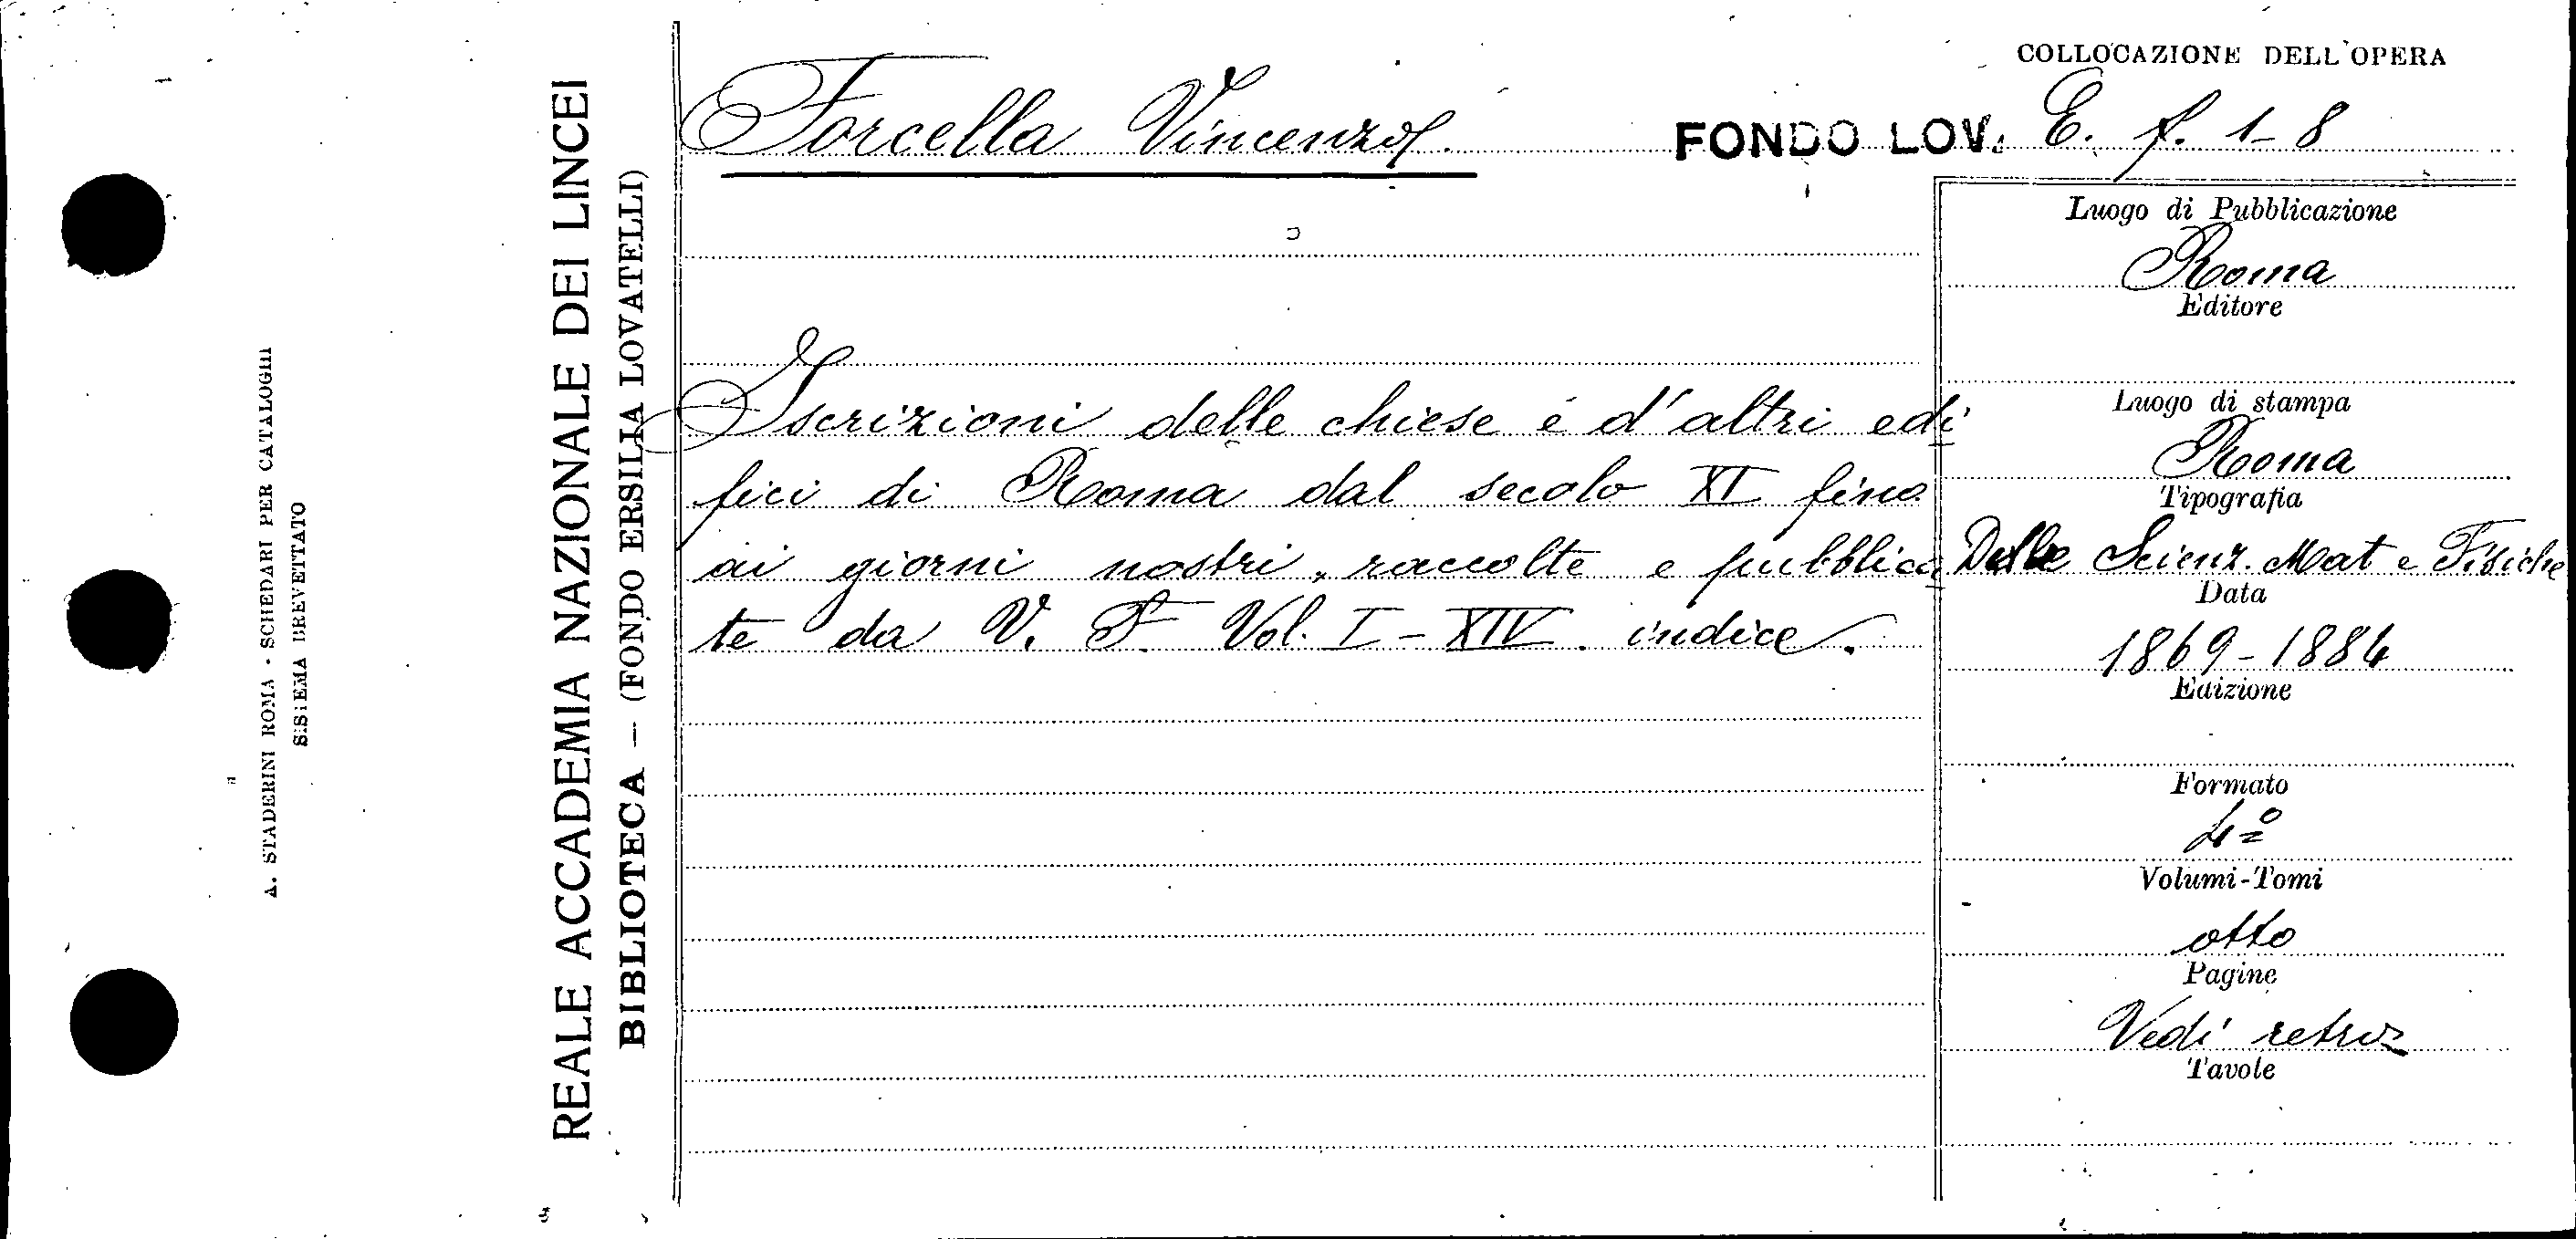 A. STADERINI ROMA - SCHEDARI PER CATALOGHI
SISTEMA BREVETTATO
REALE ACCADEMIA NAZIONALE DEI LINCEI
BIBLIOTECA — (FONDO ERSILIA LOVATELLI)
COLLOCAZIONE DELL'OPERA
Forcella Vincenzo
FONDO LOV. E. f. 1-8
Iscrizioni delle chiese e d'altri edi
fici di Roma dal secolo XI fino
ai giorni nostri, raccolte e pubblica
te da V. F. Vol. I - XIV. indice.
Luogo di Pubblicazione
Roma
Editore
Luogo di stampa
Roma
Tipografia
Delle Scienz. Mat e Fisiche
Data
1869-1884
Edizione
Formato
4º
Volumi-Tomi
otto
Pagine
Vedi retro
Tavole